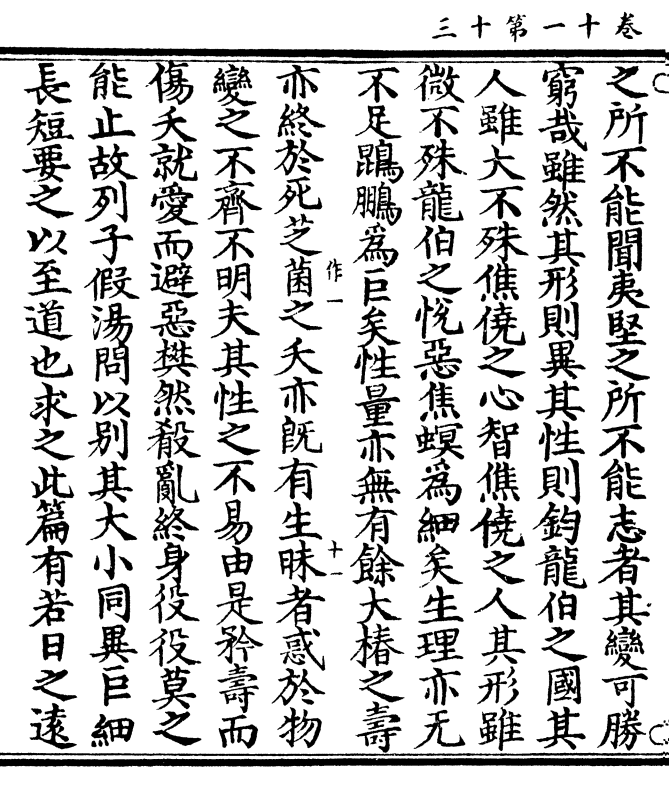 卷十一第十三
之所不能聞夷堅之所不能志者其變可勝
窮哉雖然其形則異其性則鈞龍伯之國其
人雖大不殊僬僥之心智僬僥之人其形雖
微不殊龍伯之恱惡焦螟爲細矣生理亦无
不足鵾鵬爲巨矣性量亦無有餘大椿之壽
亦終於死芝菌之夭亦旣有生昧者惑於物
作一
十一
變之不齊不明夫其性之不易由是矜壽而
傷夭就愛而避惡樊然殽亂終身役役莫之
能止故列子假湯問以别其大小同異巨細
長短要之以至道也求之此篇有若日之遠